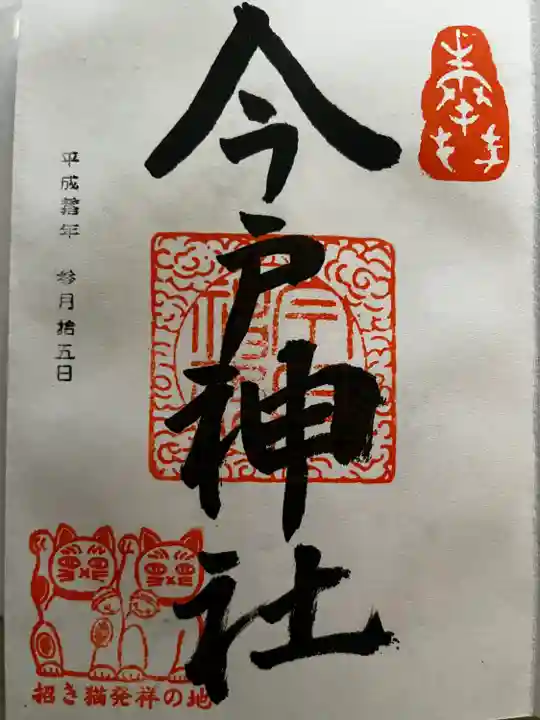 奉拝
今戸神社
平成　年　参月拾五日
招き猫発祥の地